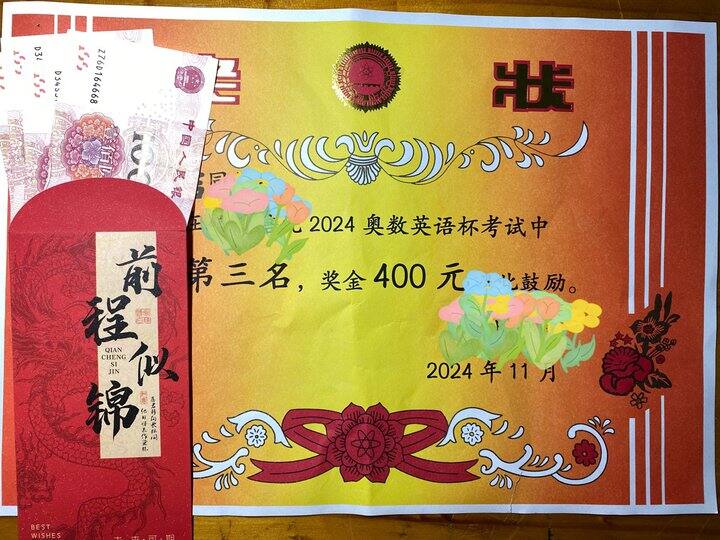 状
2024 奥数英语杯考试中
第三名，奖金 400 元
此鼓励。
2024 年 11 月
Z76D164668
中国人民银
100
前程似锦
QIAN
CHENG
SI
JIN
BEST
WISHES